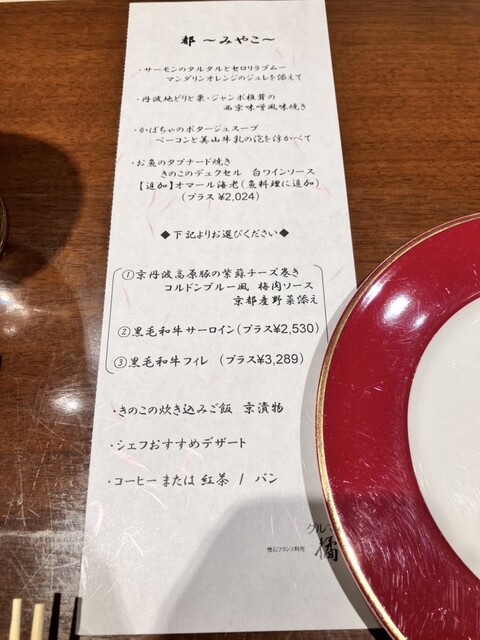 都 〜みやこ〜
・サーモンのタルタルとセロリラブムー
マンダリンオレンジのジュレを添えて
・丹波地どりと栗・ジャンボ椎茸の
西京味噌風味焼き
・かぼちゃのポタージュスープ
ベーコンと美山牛乳の泡を浮かべて
・お魚のタプナード焼き
きのこのデュクセル 白ワインソース
【追加】オマール海老(魚料理に追加)
(プラス ¥2,024)
◆下記よりお選びください◆
①京丹波高原豚の紫蘇チーズ巻き
コルドンブルー風 梅肉ソース
京都産野菜添え
②黒毛和牛サーロイン(プラス¥2,530)
③黒毛和牛フィレ (プラス¥3,289)
・きのこの炊き込みご飯 京漬物
・シェフおすすめデザート
・コーヒーまたは 紅茶 / パン
グルマ
懐石フランス料理
橘